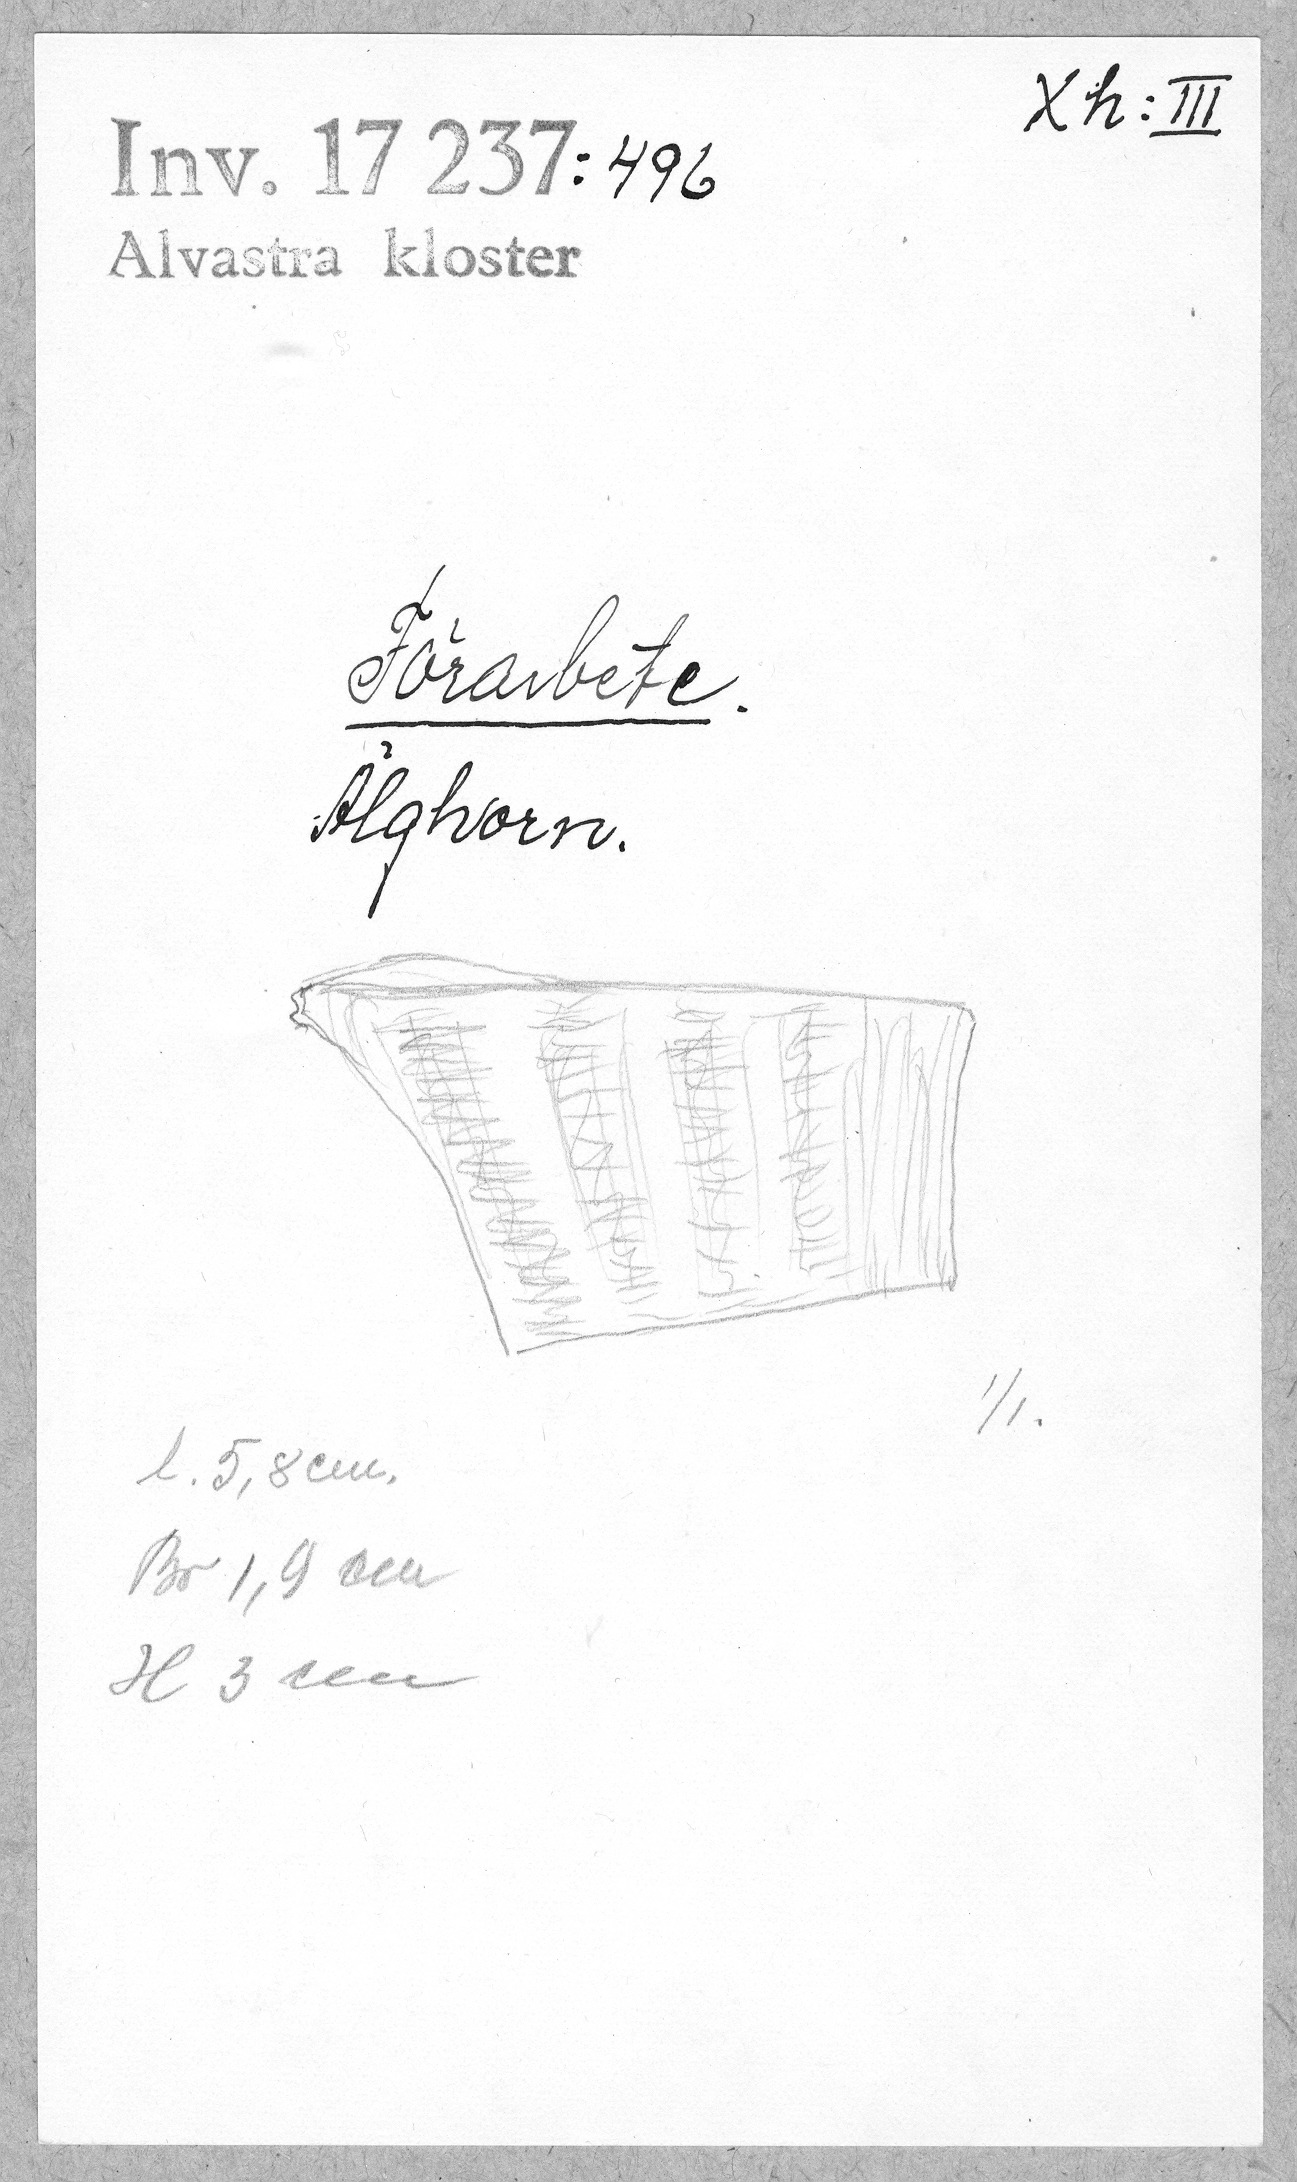 Xh: III
Inv. 17 237: 496
Alvastra kloster
Förarbete.
Älghorn.
1/1.
l. 5,8 cm.
Br 1,9 cm
H 3 cm